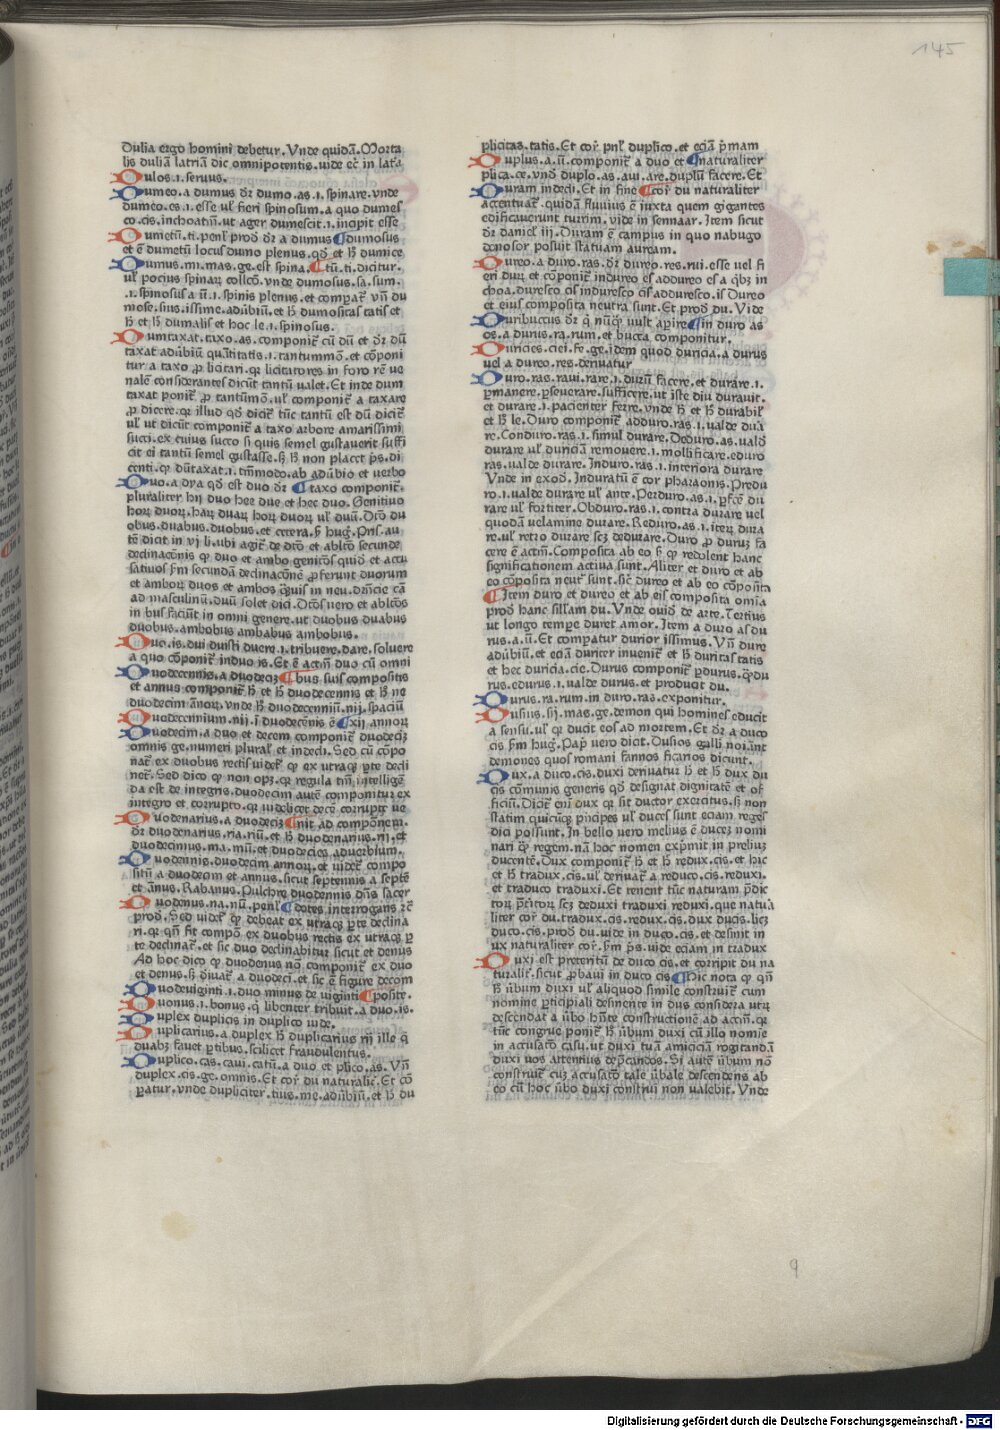 145
Dulia ergo homini debetur. Vnde quidā. Morta
lis duliā latriā dic omnipotentis. uide eč in lat͛a
Dulos .i. seruus.
Dumeo. a dumus dr̄ dumo. as .i. spinare. vnde
dumeo. es .i. esse ul' fieri spinosum. a quo dumes
co. cis. inchoatiū. ut ager dumescit .i. incipit esse
Dumetū. ti. penl' prod̄. dr̄ a dumus ¶ dumosus
et ē dumetū locus dumo plenus. qd̄ et h̄ dumice
Dumus. mi. mas. ge. est spina. ¶ tū. ti. dicitur.
ul' pocius spinaꝝ collcō. vnde dumosus. sa. sum.
.i. spinosus a ū .i. spinis plenus. et compat͛. vn̄ du
mose. sius. issime. adūbiū. et h̄ dumositas tatis et
h̄ et h̄ dumalis et hoc le .i. spinosus.
Dumtaxat. taxo. as. componit͛ cū dū et dr̄ dū
taxat adūbiū quātitatis .i. tantummō. et cōponi
tur a taxo ꝓ licitari. qr licitatores in foro rē ue
nalē considerantes dicūt tantū ualet. Et inde dum
taxat ponit͛ ꝓ tantūmō. ul' componit͛ a taxare
ꝓ dicere. qr illud qd̄ dicit͛ tūc tantū est dū dicit͛
ul' ut dicūt componit͛ a taxo arbore amarissimi
succi. ex cuius succo si quis semel gustauerit suffi
cit ei tantū semel gustasse. s; h̄ non placet p̄s. di
centi. qꝫ dūtaxat .i. tm̄modo. ab adūbio et uerbo
Duo. a dya qd̄ est duo dr̄ ¶ taxo componit͛.
pluraliter hij duo hee due et hec duo. Genitiuo
horꝝ duorꝝ. harꝝ duarꝝ horꝝ duorꝝ ul' duū. Dcō du
obus. duabus. duobus. et cetera. s̄ huḡ. Pris. au
tē dicit in vj li. ubi agit͛ de dtō et abltō secunde
declinacōnis qꝫ duo et ambo genitos quid̄ et accu
satiuos s̄m secundā declinacōnē ꝓferunt duorum
et amborꝝ duos et ambos qm̄uis in neu. dn̄cie cā
ad masculinū. duū solet dici. Dtōs uero et abltōs
in bus faciūt in omni genere. ut duobus duabus
duobus. ambobus ambabus ambobus.
Duo. is. dui duisti duere .i. tribuere. dare. soluere
a quo cōponit͛ induo is. Et ē actiū duo cū omni
Duodecennis. a duodeciꝫ ¶ bus suis compositis
et annus componit͛ h̄ et h̄ duodecennis et h̄ ne
duodecim ānorꝝ. vnde h̄ duodecenniū. nij. spaciū
Duodecennium. nij .i duodecēnis ē ¶ xij annorꝝ
Duodecim. a duo et decem componit͛ duodeciꝫ
omnis ge. numeri plural' et indecl. Sed cū cōpo
nat͛ ex duobus rectis uidet͛ qꝫ ex utraqꝫ pte decli
net͛. Sed dico qꝫ non opꝫ. qr regula tm̄ intelligē
da est de integris. duodecim autē componitur ex
integro et corrupto. qr uidelicet decē corrupt͛ ue
Duodenarius. a duodeciꝫ ¶ nit ad compōnem.
dr̄ duodenarius. ria. riū. et h̄ duodenarius. rij. et
duodecimus. ma. mū. et duodecies aduerbium.
Duodennis. duodecim annorꝝ. et uidet͛ compo
sitū a duodecim et annus. sicut septennis a septē
et ānus. Rabanus. Pulchre duodennis dn̄s sacer
Duodenus. na. nū. penl' ¶ dotes interrogans zč
prod̄. Sed uidet͛ qꝫ debeat ex utraqꝫ pte declina
ri. qr qn̄ fit compō ex duobus rectis ex utraqꝫ p
te declinat͛. et sic duo declinabitur sicut et denus
Ad hoc dico qꝫ duodenus nō componit͛ ex duo
et denus. s; d̄iuat͛ a duodeci. et sic ē figure decom
Duodeuiginti .i. duo minus de uiginti ¶ posite.
Duonus .i. bonus. q̄ libenter tribuit. a duo. is.
Duplex duplicis in duplico uide.
Duplicarius. a duplex h̄ duplicarius rij ille q̄
duabꝫ fauet ptibus. scilicet fraudulentus.
Duplico. cas. caui. catū. a duo et plico. as. Vn̄
duplex. cis. ge. omnis. Et cor̄ du naturalit͛. Et cō
patur. vnde dupliciter. tius. me. adūbiū. et h̄ du
plicitas. tatis. Et cor̄ pnl' duplico. et eciā p̄mam
Duplus. a. ū. componit͛ a duo et ¶ naturaliter
plica. ce. vnd̄ duplo. as. aui. are. duplū facere. Et
Duram indecl. Et in fine ¶ cor̄ du naturaliter
accentuat͛. quidā fluuius ē iuxta quem gigantes
edificauerunt turrim. vide in sennaar. Item sicut
dr̄ daniel' iij. Duram ē campus in quo nabugo
donosor posuit statuam auream.
Dureo. a duro. ras. dr̄ dureo. res. rui. esse uel fi
eri durꝝ et cōponit͛ indureo es addureo es a qbꝫ in
choa. duresco cis induresco cis adduresco. is Dureo
et eius composita neutra sunt. Et prod̄ du. Vide
Duribuccus dr̄ q̄ nūqꝫ uult apire ¶ in duro as
os. a durus. ra. rum. et bucca componitur.
Duricies. ciei. fe. ge. idem quod duricia. a durus
uel a dureo. res. deriuatur
Duro. ras. raui. rare .i. durū facere. et durare .i.
pmanere. pseuerare. sufficere. ut iste diu durauit.
et durare .i. pacienter ferre. vnde h̄ et h̄ durabil'
et h̄ le. Duro componit͛ adduro. ras .i. ualde dura
re. Conduro. ras .i. simul durare. Deduro. as. uald̄
durare ul' duriciā remouere .i. mollificare. eduro
ras. ualde durare. Induro. ras .i. interiora durare
Vnde in exod̄. Induratū ē cor pharaonis. Predu
ro .i. ualde durare ul' ante. Perduro. as .i. pfcē du
rare ul' fortiter. Obduro. ras .i. contra durare uel
quodā uelamine durare. Reduro. as .i. iterꝝ dura
re. ul' retro durare scꝫ dedurare. Duro ꝓ duruꝫ fa
cere ē actiū. Composita ab eo s̄ qꝫ redolent hanc
significationem actiua sunt. Aliter et duro et ab
eo cōposita neut͛ sunt. sic̄ dureo et ab eo cōposita
¶ Item duro et dureo et ab eis composita omīa
prod̄ hanc sillam du. Vnde ouid̄ de arte. Tertius
ut longo tempe duret amor. Item a duro as du
rus. a. ū. Et compatur durior issimus. Vn̄ dure
adūbiū. et eciā duriter inuenit͛ et h̄ duritas tatis
et hec duricia. cie. Durus componit͛ pdurus. qꝫdu
rus. edurus .i. ualde durus. et producit du.
Durus. ra. rum. in duro. ras. exponitur.
Dusius. sij. mas. ge. demon qui homines educit
a sensu. ul' qr ducit eos ad mortem. Et dr̄ a duco
cis s̄m huḡ. Pap̄ uero dicit. Dusios galli noiānt
demones quos romani faunos ficarios dicunt.
Dux. a duco. cis. duxi deriuatur h̄ et h̄ dux du
cis cōmunis generis qd̄ designat dignitatē et of
ficiū. Dicit͛ eni dux qr sit ductor exercitus. s; non
statim quicūqꝫ pncipes ul' duces sunt eciam reges
dici possunt. In bello uero melius ē duceꝫ nomi
nari qꝫ regem. nā hoc nomen expmit in preliuꝫ
ducentē. Dux componit͛ h̄ et h̄ redux. cis. et hic
et h̄ tradux. cis. ul' deriuat͛ a reduco. cis. reduxi.
et traduco traduxi. Et retent tūc naturam p̄dic
torꝝ pteritorꝝ scꝫ deduxi traduxi reduxi. que natua
liter cor̄ du. tradux. cis. redux. cis. dux ducis. licꝫ
duco. cis. prod̄ du. uide in duco. cis. et desinit in
ux naturaliter cor̄. s̄m p̄s. uide eciam in tradux
Duxi est preteritū de duco cis. et corripit du na
turalit͛. sicut ꝓbaui in duco cis ¶ Hic nota qꝫ qn̄
h̄ ūbum duxi ul' aliquod simile construit͛ cum
nomine pticipiali desinente in dus considera utꝝ
descendat a ūbo hn̄te constructionē ad actiū. qr
tūc congrue ponit͛ h̄ ūbum duxi cū illo nomie
in accusatō casu. ut duxi tuā amiciciā rogitandā
duxi uos attentius dep̄candos. Si autē ūbum nō
construit͛ cuꝫ accusatō tale ūbale descendens ab
eo cū hoc ūbo duxi construi non ualebit. Vnde
9
Digitalisierung gefördert durch die Deutsche Forschungsgemeinschaft - DFG